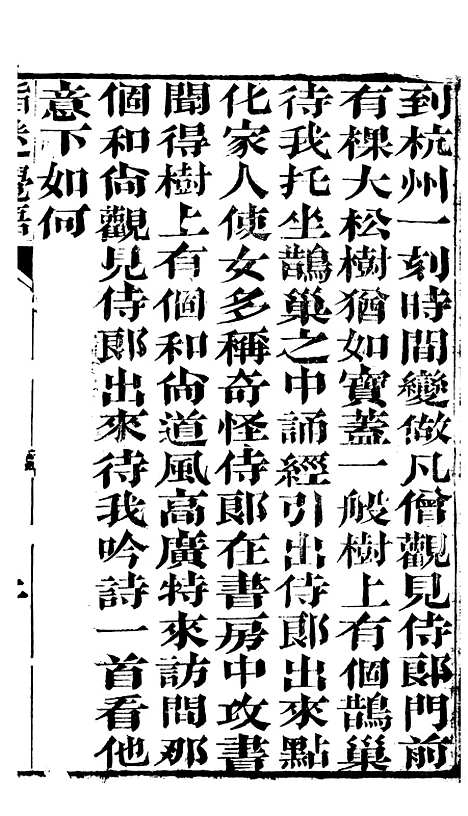 到杭州一刻時間變做凡僧觀見侍郎門前
有棵大松樹猶如寶蓋一般樹上有個鵲巢
待我托坐鵲巢之中誦經引出侍郎出來點
化家人使女多稱奇怪侍郎在書房中攻書
聞得樹上有個和尙道風高廣特來訪問那
個和尙觀見侍郎出來待我吟詩一首看他
意下如何